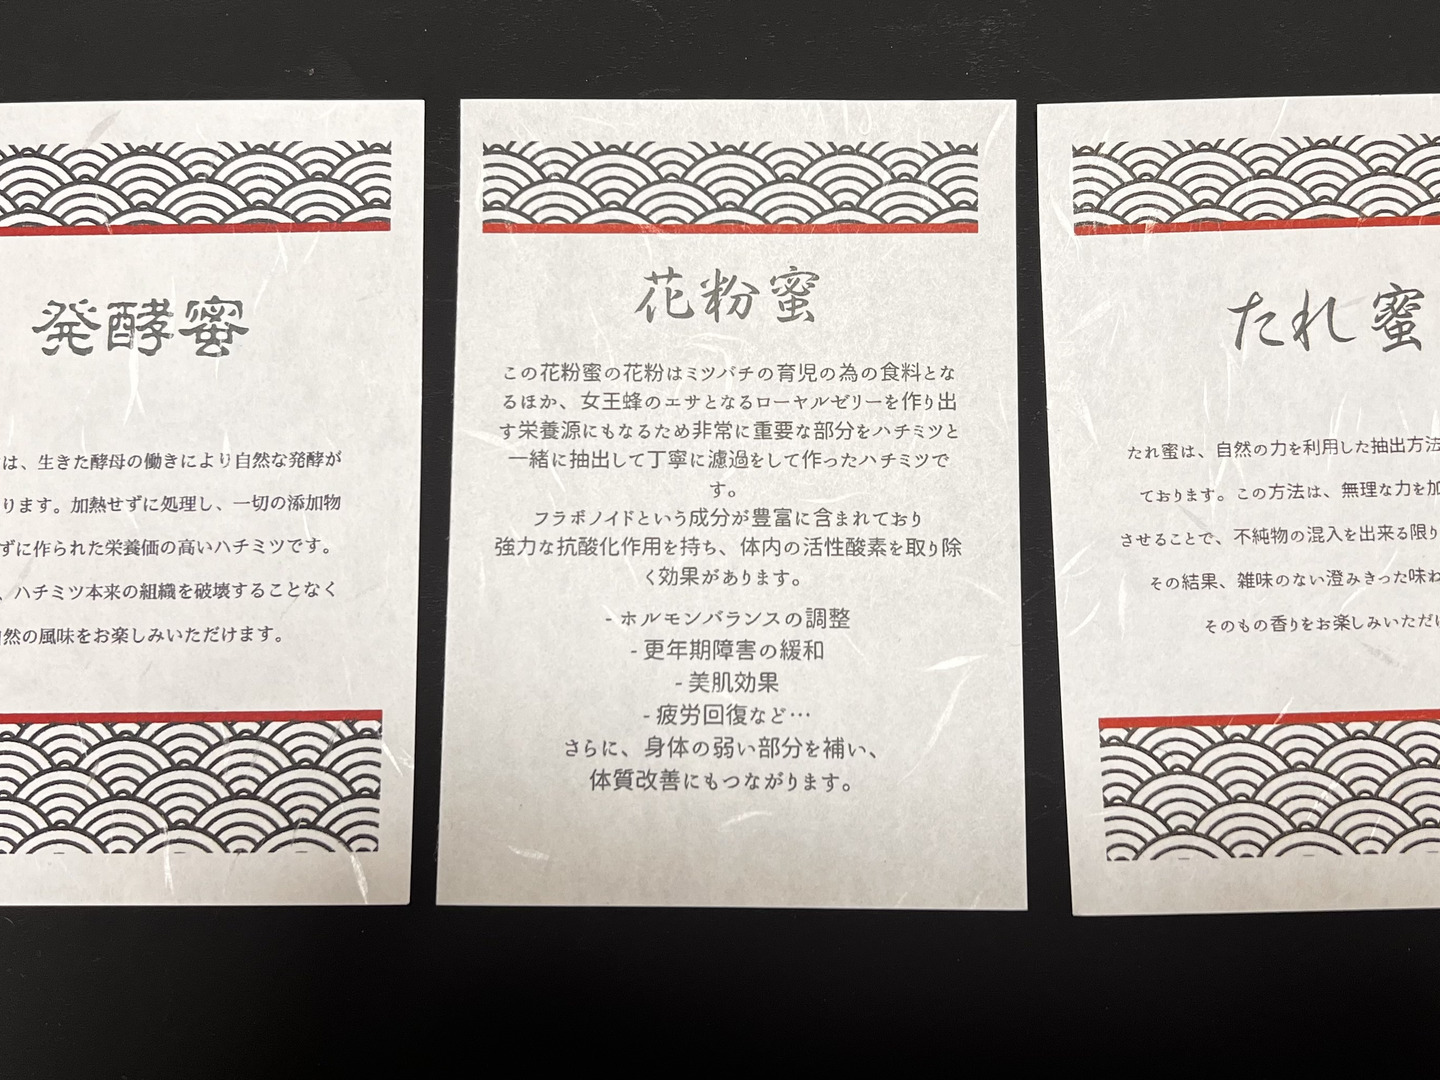 発酵蜜
は、生きた酵母の働きにより自然な発酵が
ります。加熱せずに処理し、一切の添加物
ずに作られた栄養価の高いハチミツです。
、ハチミツ本来の組織を破壊することなく
然の風味をお楽しみいただけます。
花粉蜜
この花粉蜜の花粉はミツバチの育児の為の食料とな
るほか、女王蜂のエサとなるローヤルゼリーを作り出
す栄養源にもなるため非常に重要な部分をハチミツと
一緒に抽出して丁寧に濾過をして作ったハチミツで
す。
フラボノイドという成分が豊富に含まれており
強力な抗酸化作用を持ち、体内の活性酸素を取り除
く効果があります。
- ホルモンバランスの調整
- 更年期障害の緩和
- 美肌効果
- 疲労回復など…
さらに、身体の弱い部分を補い、
体質改善にもつながります。
たれ蜜
たれ蜜は、自然の力を利用した抽出方法
ております。この方法は、無理な力を加
させることで、不純物の混入を出来る限り
その結果、雑味のない澄みきった味わ
そのもの香りをお楽しみいただけ